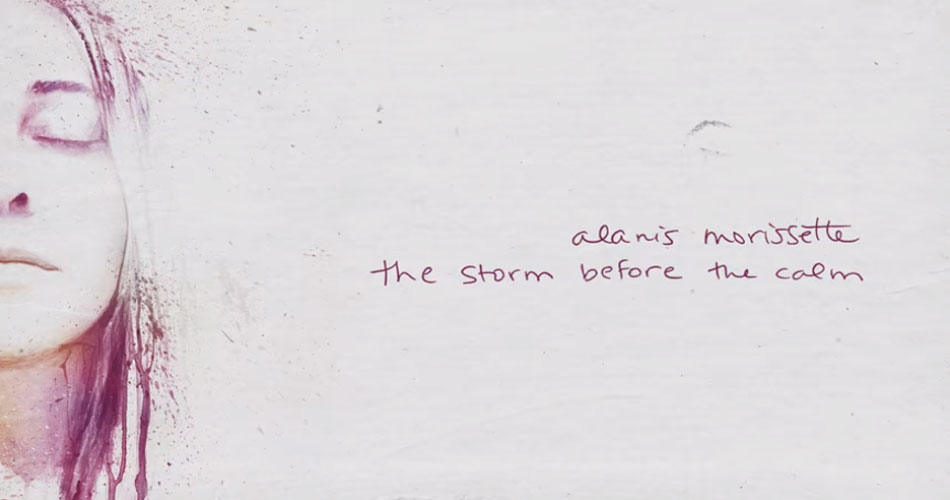 alanis morissette
the storm before the calm